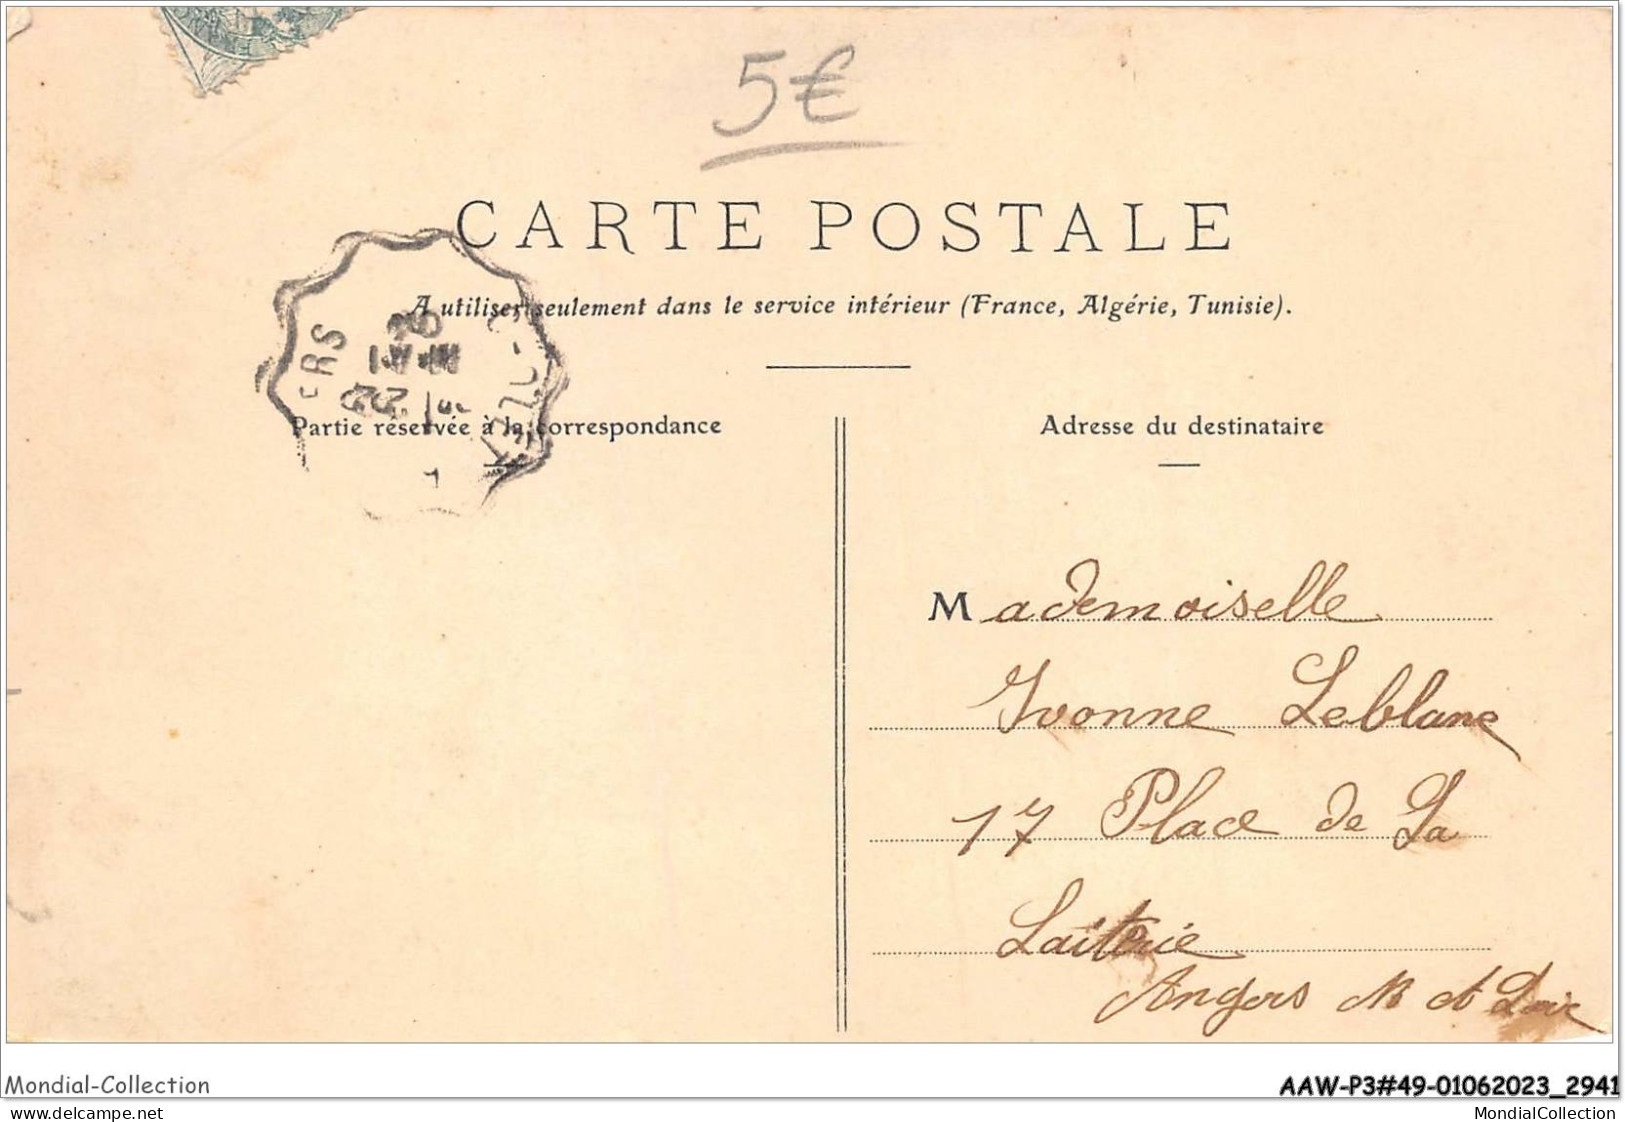 5€
CARTE POSTALE
A utiliser seulement dans le service intérieur (France, Algérie, Tunisie).
Partie réservée à la correspondance
Adresse du destinataire
Mademoiselle
Yvonne Leblanc
17 Place de La
Laiterie
Angers M et Loire
Mondial-Collection
AAW-P3#49-01062023_2941
delcampe.net
MondialCollection